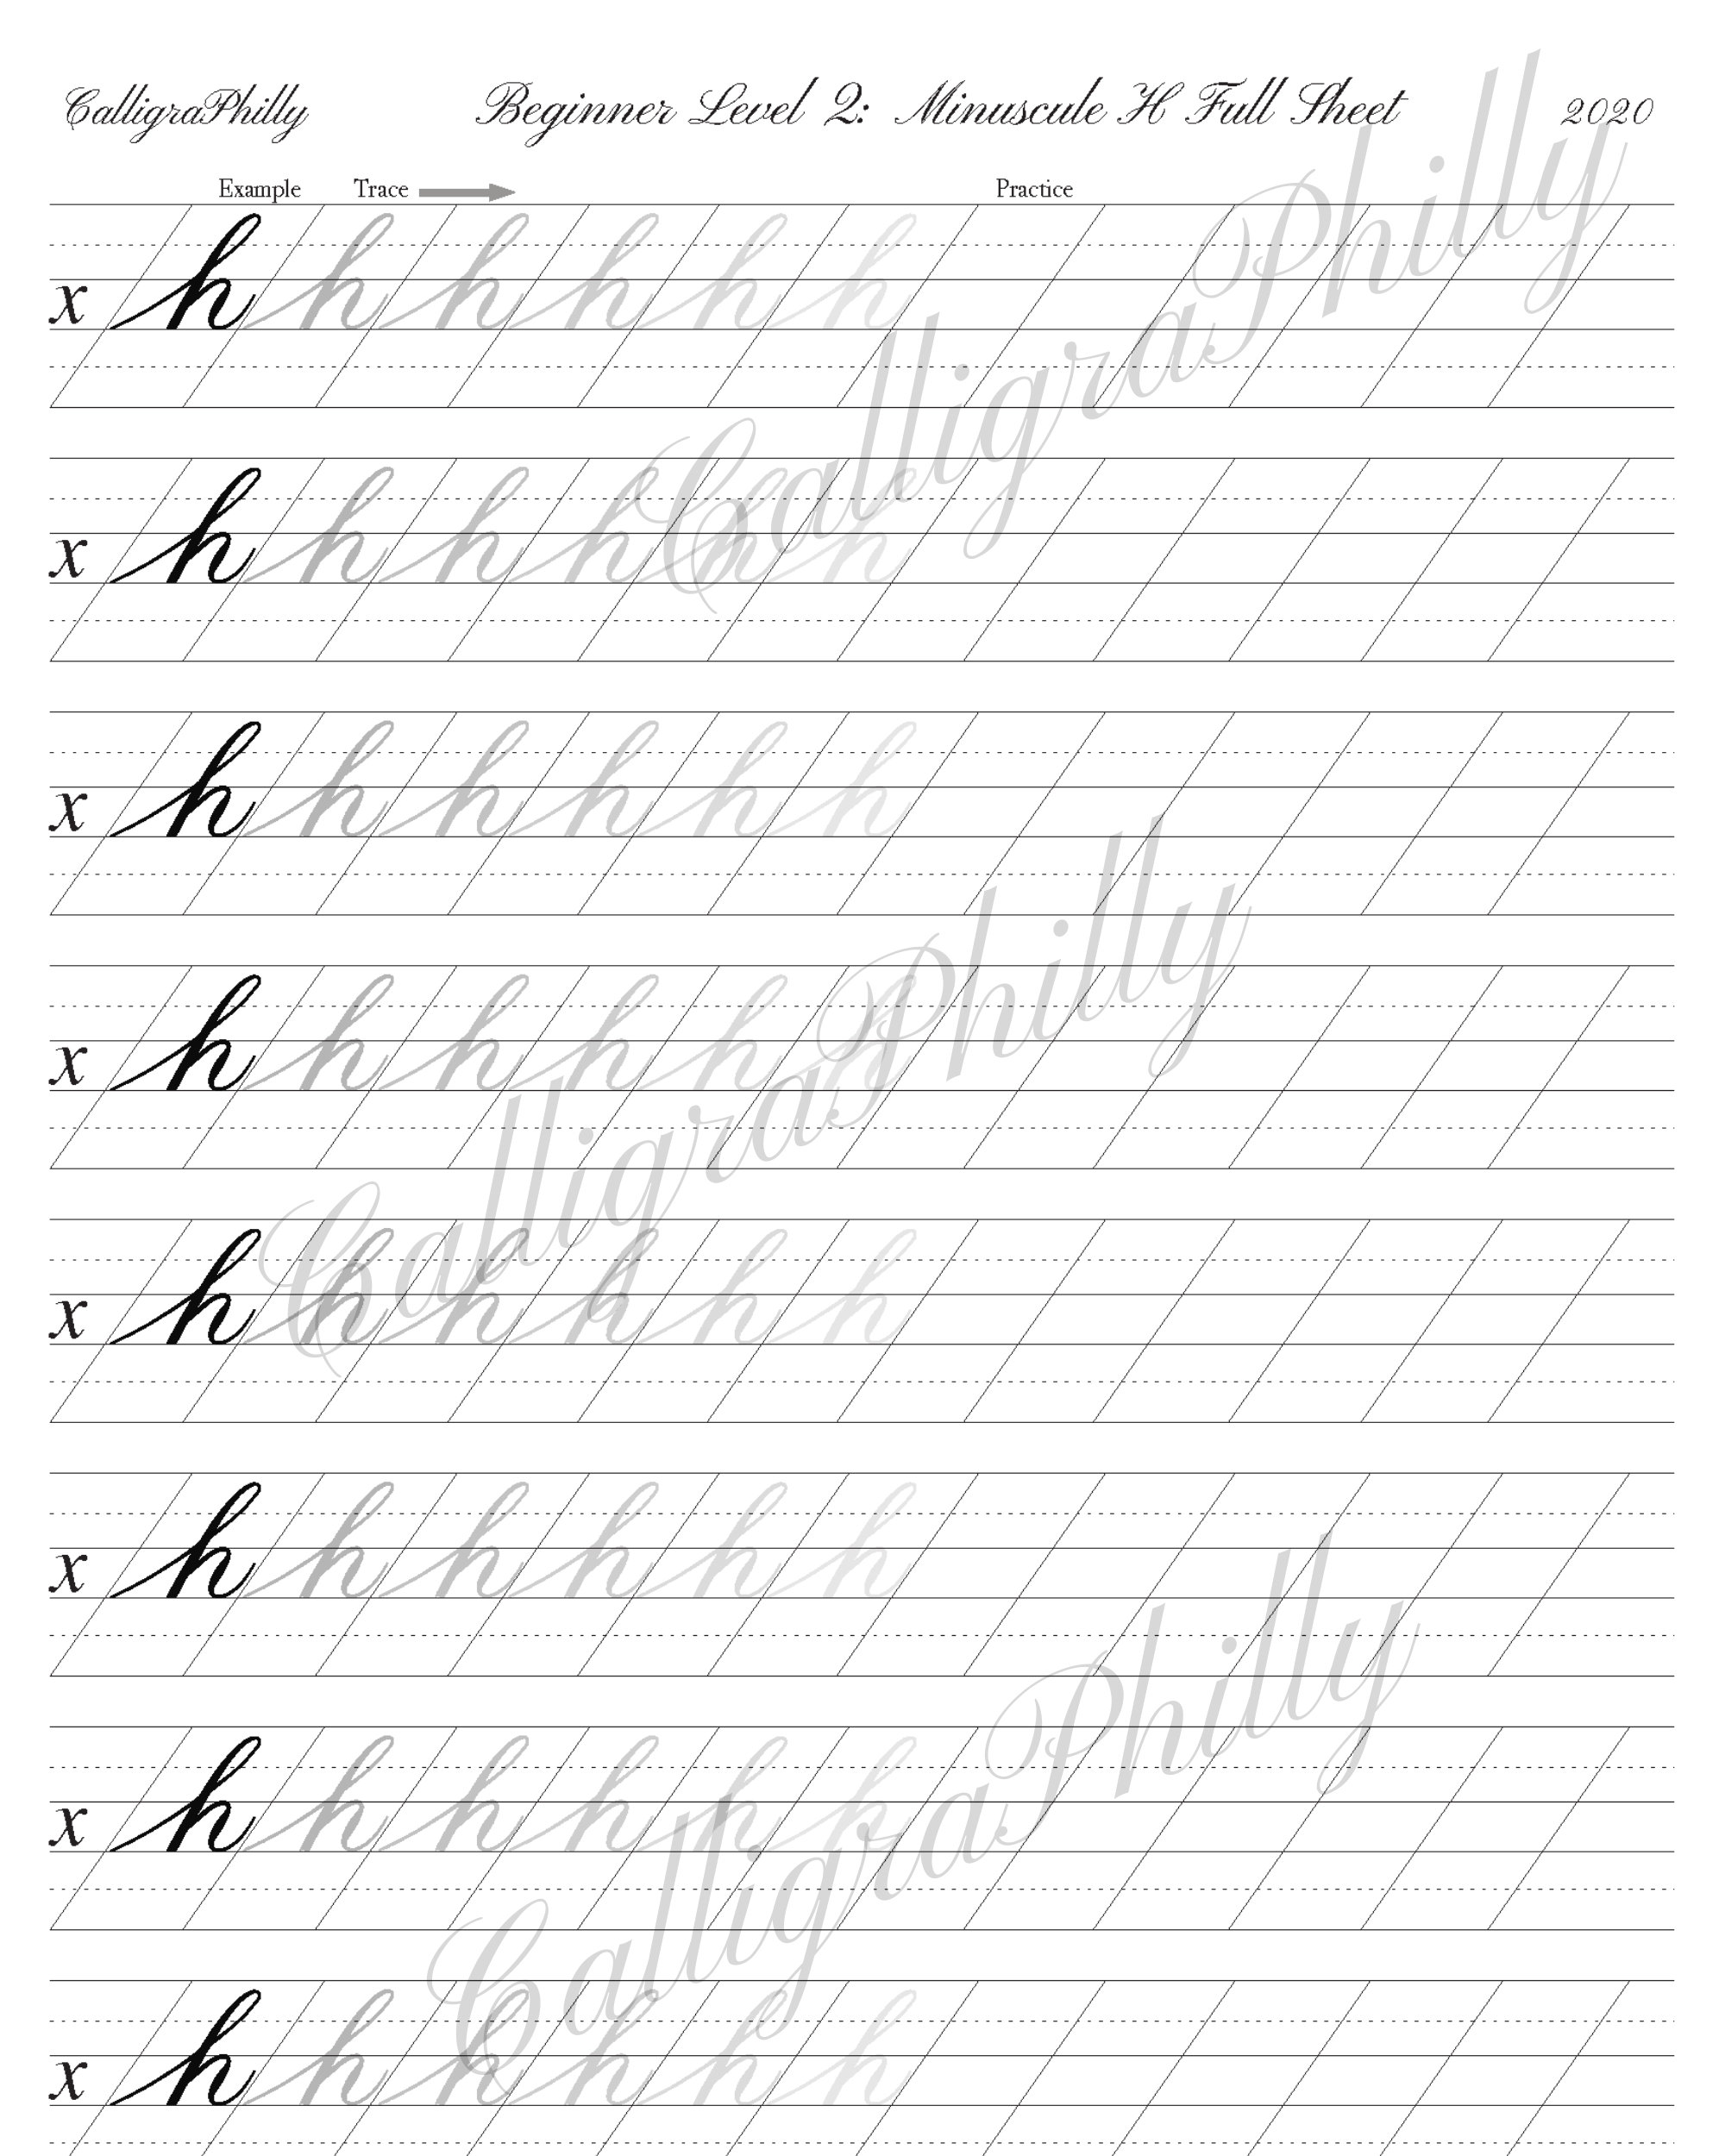 CalligraPhilly Beginner Level 2: Minuscule H Full Sheet 2020
Example Trace Practice
x h h h h h h
x h h h h h h
x h h h h h h
x h h h h h h
x h h h h h h
x h h h h h h
x h h h h h h
x h h h h h h
CalligraPhilly
CalligraPhilly
CalligraPhilly